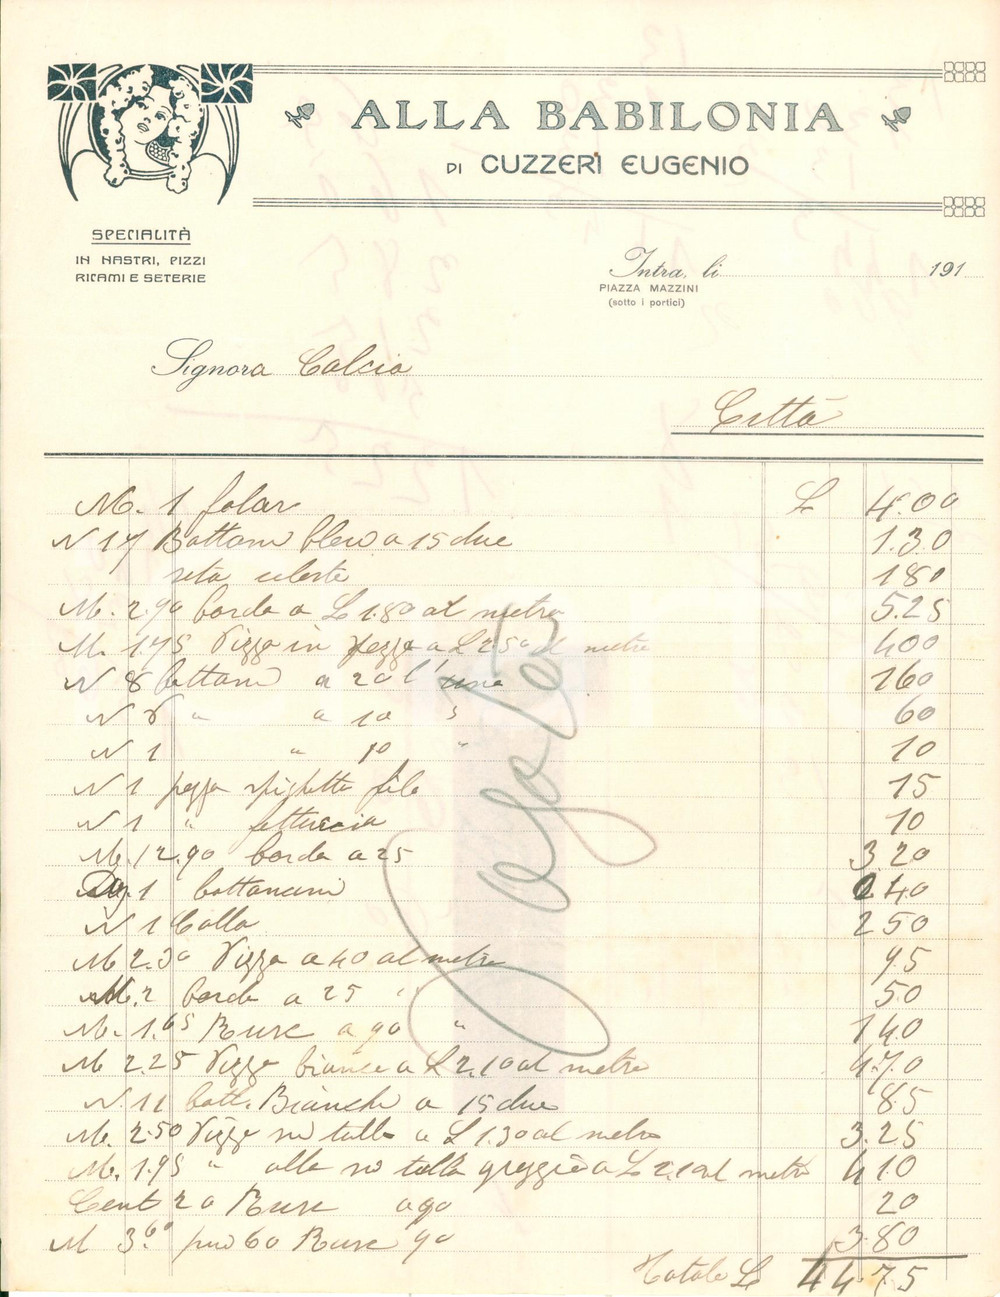 ALLA BABILONIA
DI CUZZERI EUGENIO
SPECIALITÀ
IN NASTRI, PIZZI
RICAMI E SETERIE
Intra, li 191
PIAZZA MAZZINI
(sotto i portici)
Signora Calcia
Città
M. 1 folar £ 4.00
N 17 Bottoni bleu a 15 due 1.30
seta celeste 180
M. 2.90 borda a £ 1.80 al metro 5.25
M. 175 Pizzo in pezza a £ 2.50 al metro 400
N 8 bottoni a 20 l'uno 160
N " a 10 " 60
N 1 " 10 " 10
N 1 pezza spighetta filo 15
N 1 " fettuccia 10
M. 12.90 borda a 25 3.20
Dz. 1 bottoncini 240
N 1 Colla 250
M 2.30 Pizzo a 40 al metro 95
M. 2 borda a 25 " 50
M. 1.65 a 90 " 140
M 2.25 Pizzo bianco a £ 2.10 al metro 4.70
N. 11 bott. Bianchi a 15 due 85
M. 2.50 Pizzo su tullo a £ 1.30 al metro 3.25
M. 1.95 " alto su tullo greggio a £ 2.10 al metro 410
Cent 20 a 90 20
M 3.60 60 90 3.80
Totale £ 44.75
Pagato